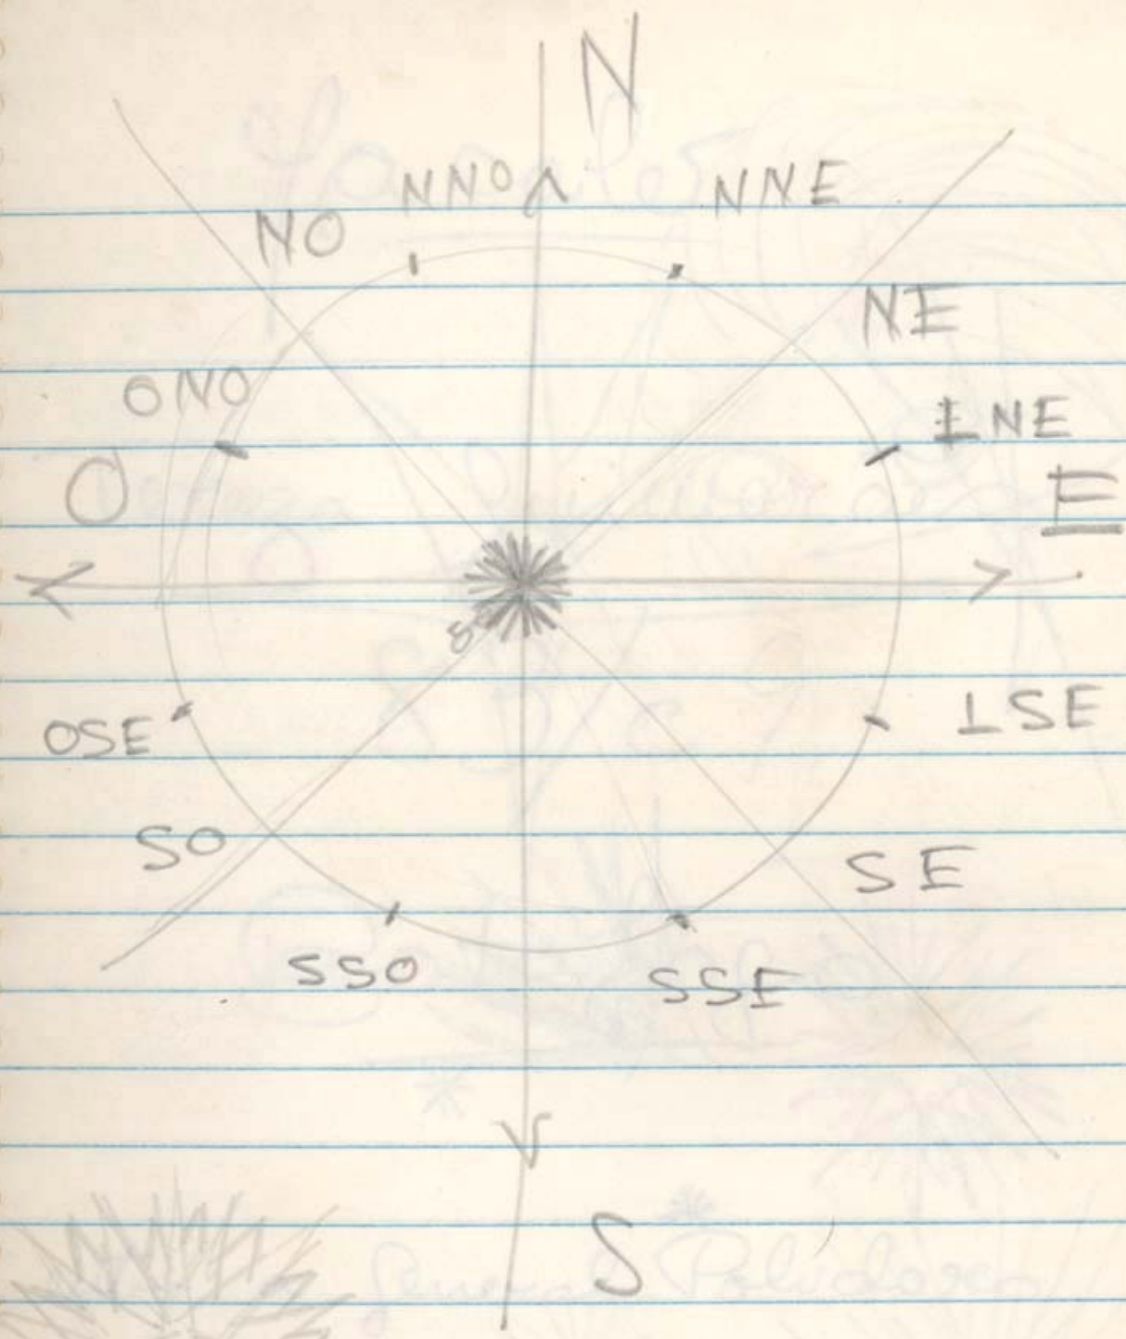 N
NNO NNE
NO
NE
ONO
ENE
O
E
OSE
ESE
SO
SE
SSO
SSE
S